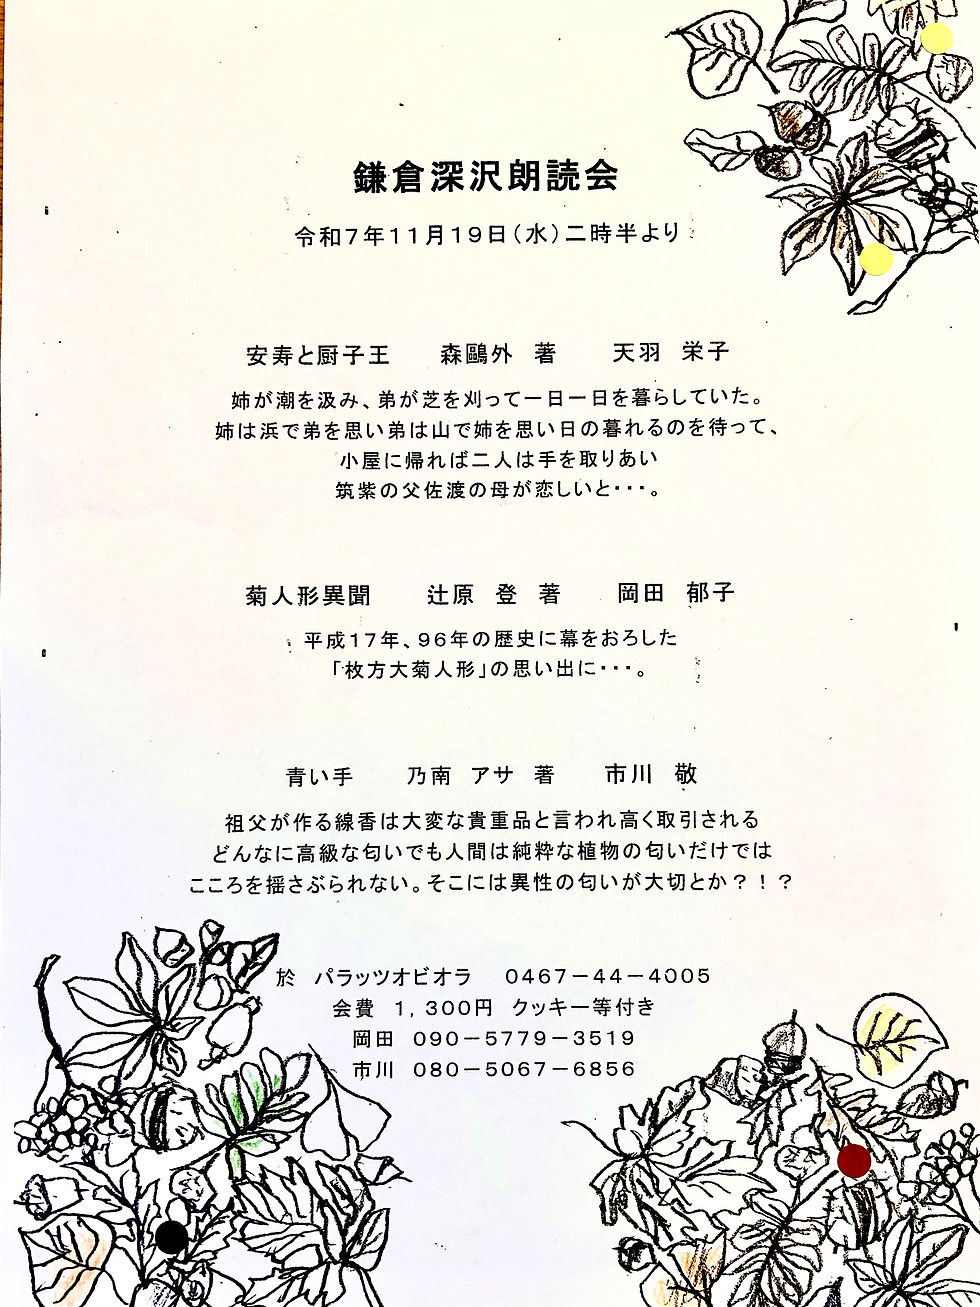 鎌倉深沢朗読会
令和7年11月19日(水)二時半より
安寿と厨子王　森鷗外　著　天羽　栄子
姉が潮を汲み、弟が芝を刈って一日一日を暮らしていた。
姉は浜で弟を思い弟は山で姉を思い日の暮れるのを待って、
小屋に帰れば二人は手を取りあい
筑紫の父佐渡の母が恋しいと･･･。
菊人形異聞　辻原　登　著　岡田　郁子
平成17年、96年の歴史に幕をおろした
「枚方大菊人形」の思い出に･･･。
青い手　乃南　アサ　著　市川　敬
祖父が作る線香は大変な貴重品と言われ高く取引される
どんなに高級な匂いでも人間は純粋な植物の匂いだけでは
こころを揺さぶられない。そこには異性の匂いが大切とか？！？
於　パラッツオビオラ　0467－44－4005
会費　1,300円　クッキー等付き
岡田　090－5779－3519
市川　080－5067－6856